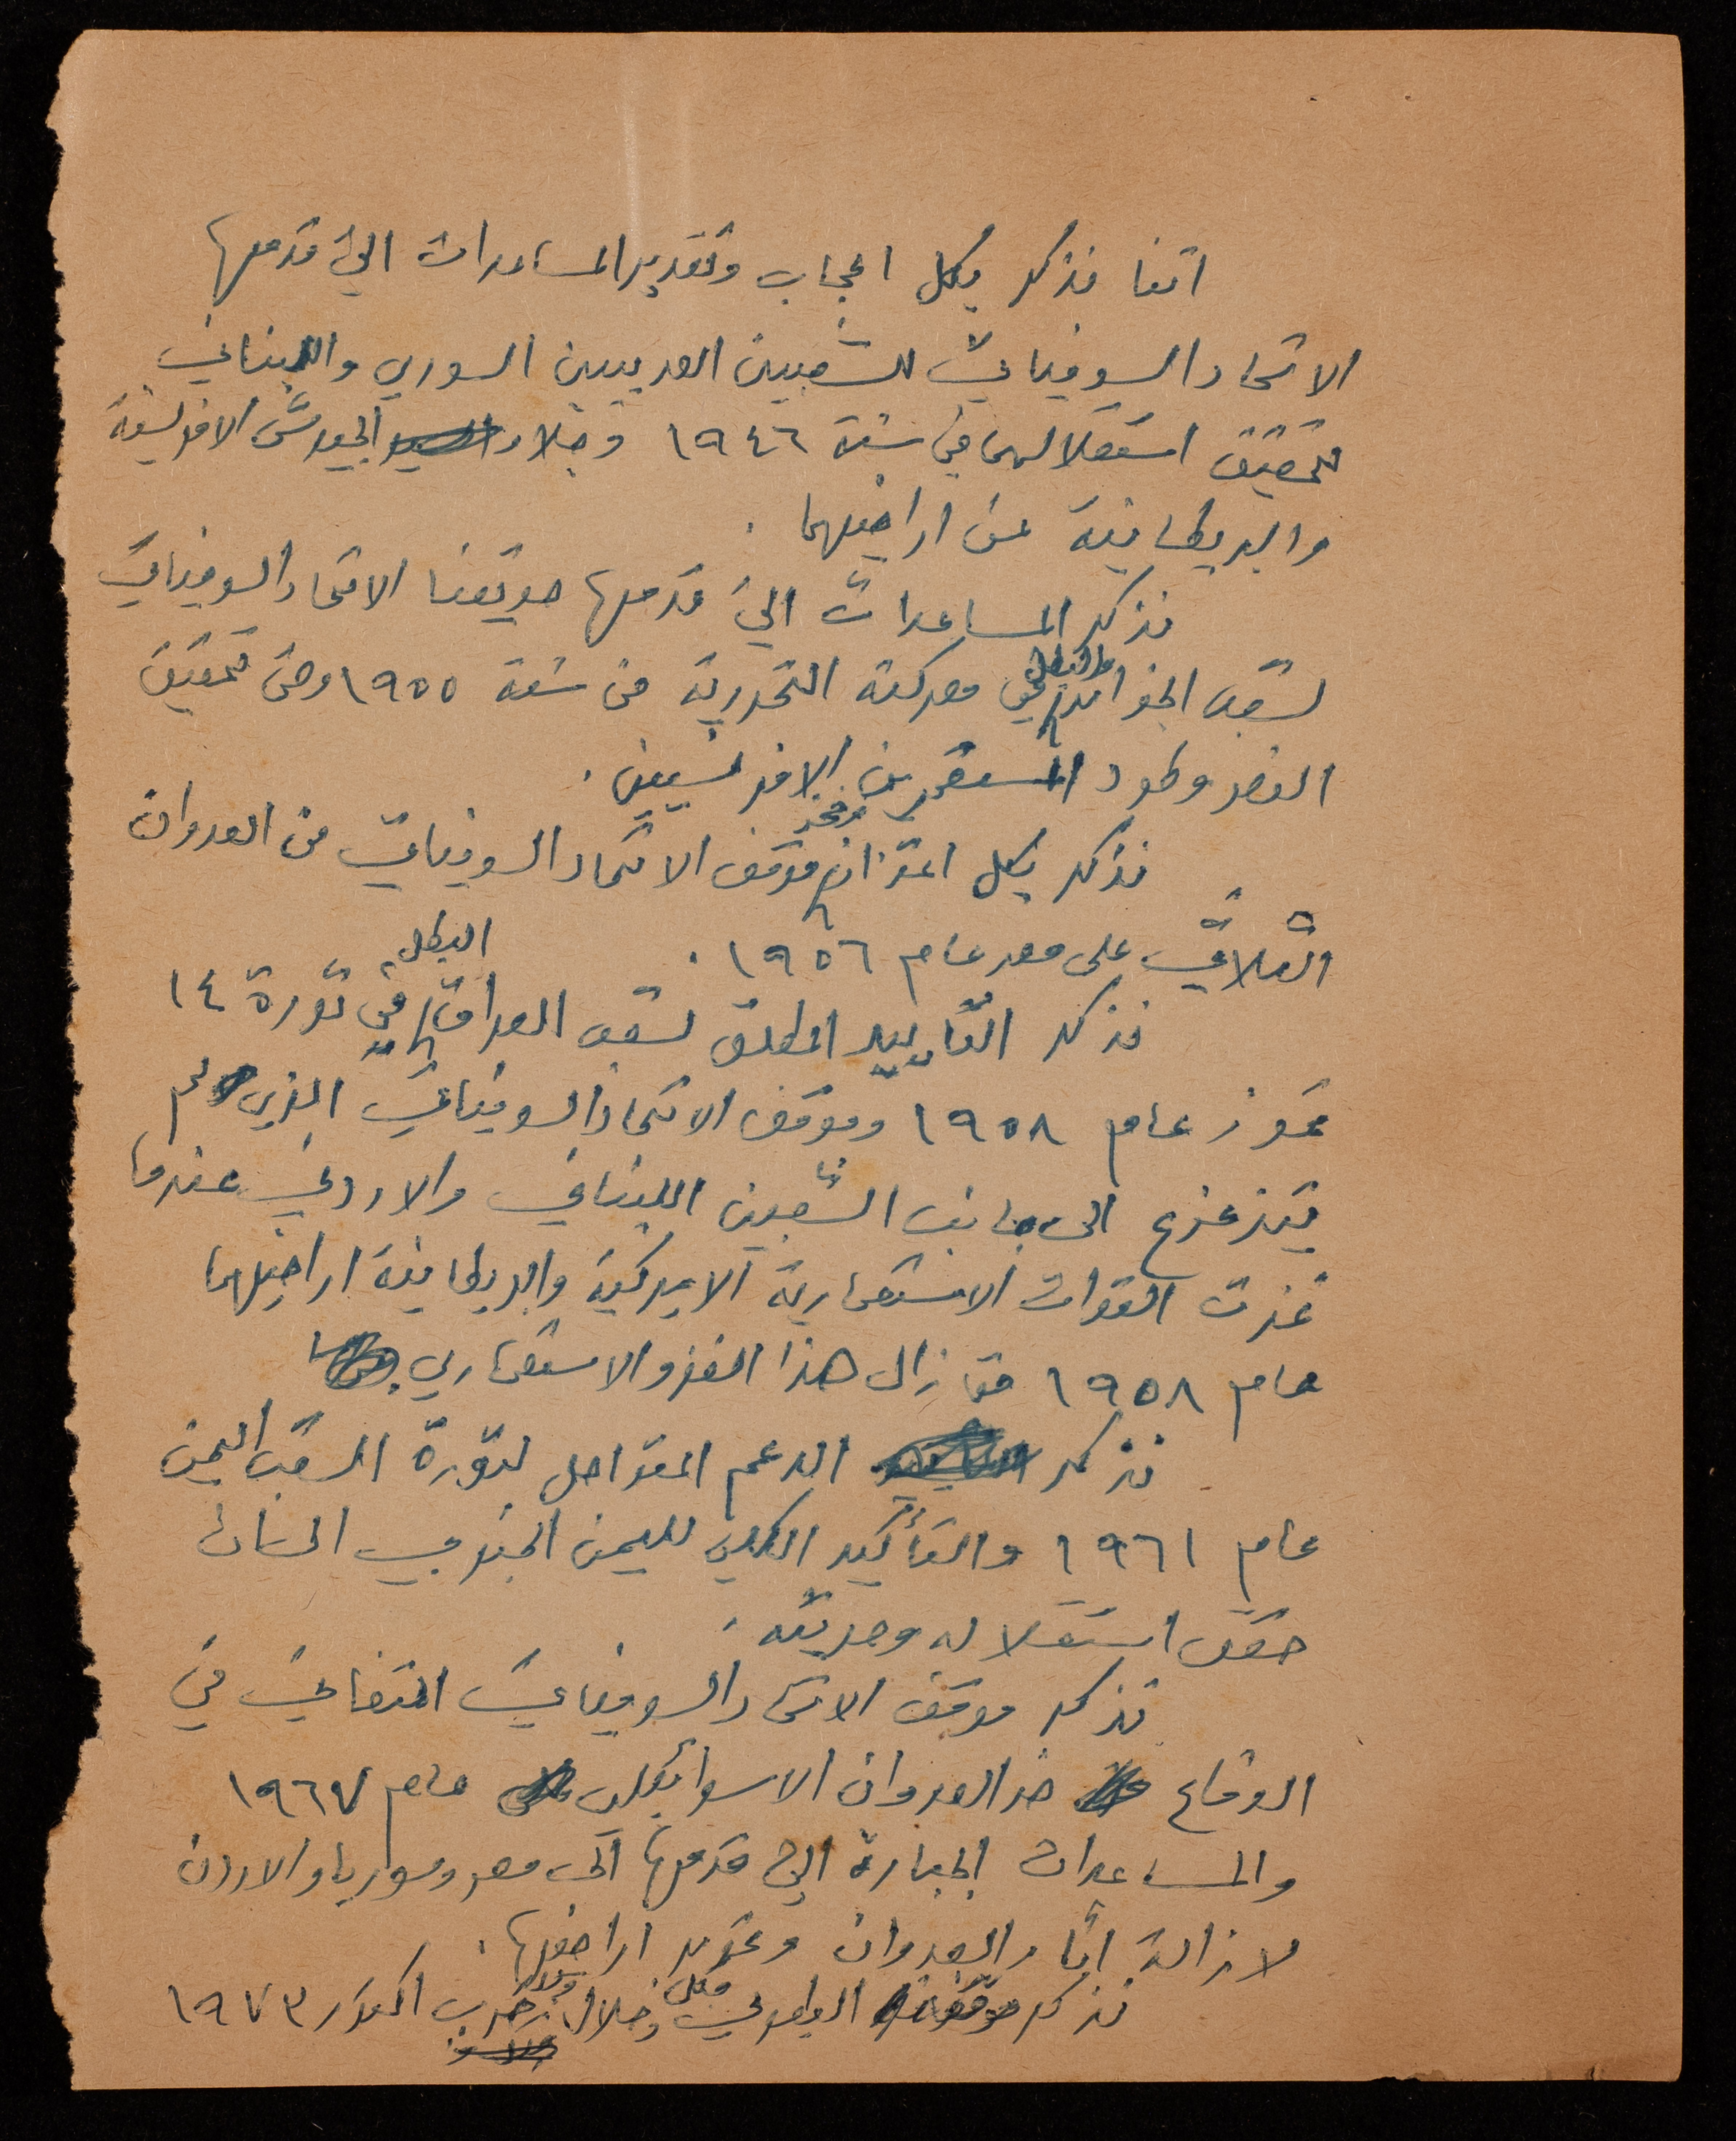 اننا نذكر بكل اعجاب وتقدير المساعدات التي قدمها
الاتحاد السوفياتي للشعبين العربيين السوري واللبناني
لتحقيق استقلالهما في سنة ١٩٤٦ وجلاء الجيوش الافرنسية
والبريطانية عن اراضيهما .
نذكر المساعدات التي قدمها صديقنا الاتحاد السوفياتي
لشعب الجزائر البطل في معركته التحررية من سنة ١٩٥٥ وحتى تحقيق
النصر وطرد المستعمرين الافرنسيين .
نذكر بكل اعتزاز وفخر موقف الاتحاد السوفياتي من العدوان
الثلاثي على مصر عام ١٩٥٦ .
نذكر التأييد المطلق لشعب العراق البطل في ثورة ١٤
تموز عام ١٩٥٨ وموقف الاتحاد السوفياتي الذي لم
يتزعزع الى جانب الشعبين اللبناني والاردني عندما
غزت القوات الاستعمارية الاميركية والبريطانية اراضيهما
عام ١٩٥٨ حتى زال هذا الغزو الاستعماري .
نذكر الدعم المتواصل لثورة الشعب اليمن
عام ١٩٦١ والتأكيد الكلي لليمن الجنوبي الى ان
حقق استقلاله وحريته .
نذكر موقف الاتحاد السوفياتي المتفاني في
الدفاع ضد العدوان الاسرائيلي عام ١٩٦٧
والمساعدات الجبارة التي قدمها الى مصر وسوريا والاردن
لازالة آثار العدوان وتحرير اراضيها .
نذكر البطولي قبل وخلال حرب اكتوبر ١٩٧٣